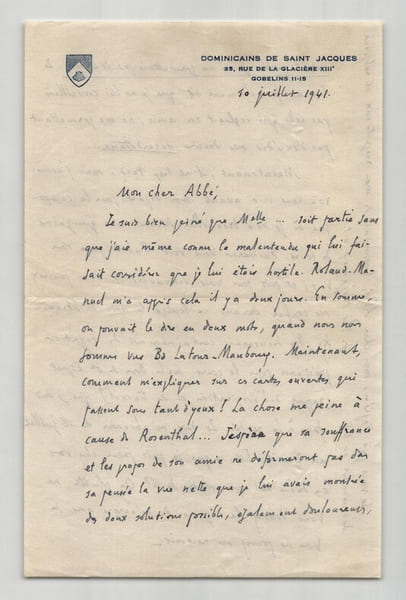 DOMINICAINS DE SAINT JACQUES
35, RUE DE LA GLACIÈRE XIIIe
GOBELINS 11-15
10 juillet 1941.
Mon cher Abbé,
Je suis bien peiné que Melle ... soit partie sans
que j'aie même connu le malentendu qui lui fai-
sait considérer que je lui étais hostile. Roland-Ma-
nuel m'a appris cela il y a deux jours. En somme,
on pouvait le dire en deux mots, quand nous nous
sommes vus Bd Latour-Maubourg. Maintenant,
comment m'expliquer sur ces cartes ouvertes qui
passent sous tant d'yeux ! La chose me peine à
cause de Rosenthal... J'espère que sa souffrance
et les propos de son amie ne déformeront pas dans
sa pensée la vue nette que je lui avais montrée
des deux solutions possibles, également douloureuses,